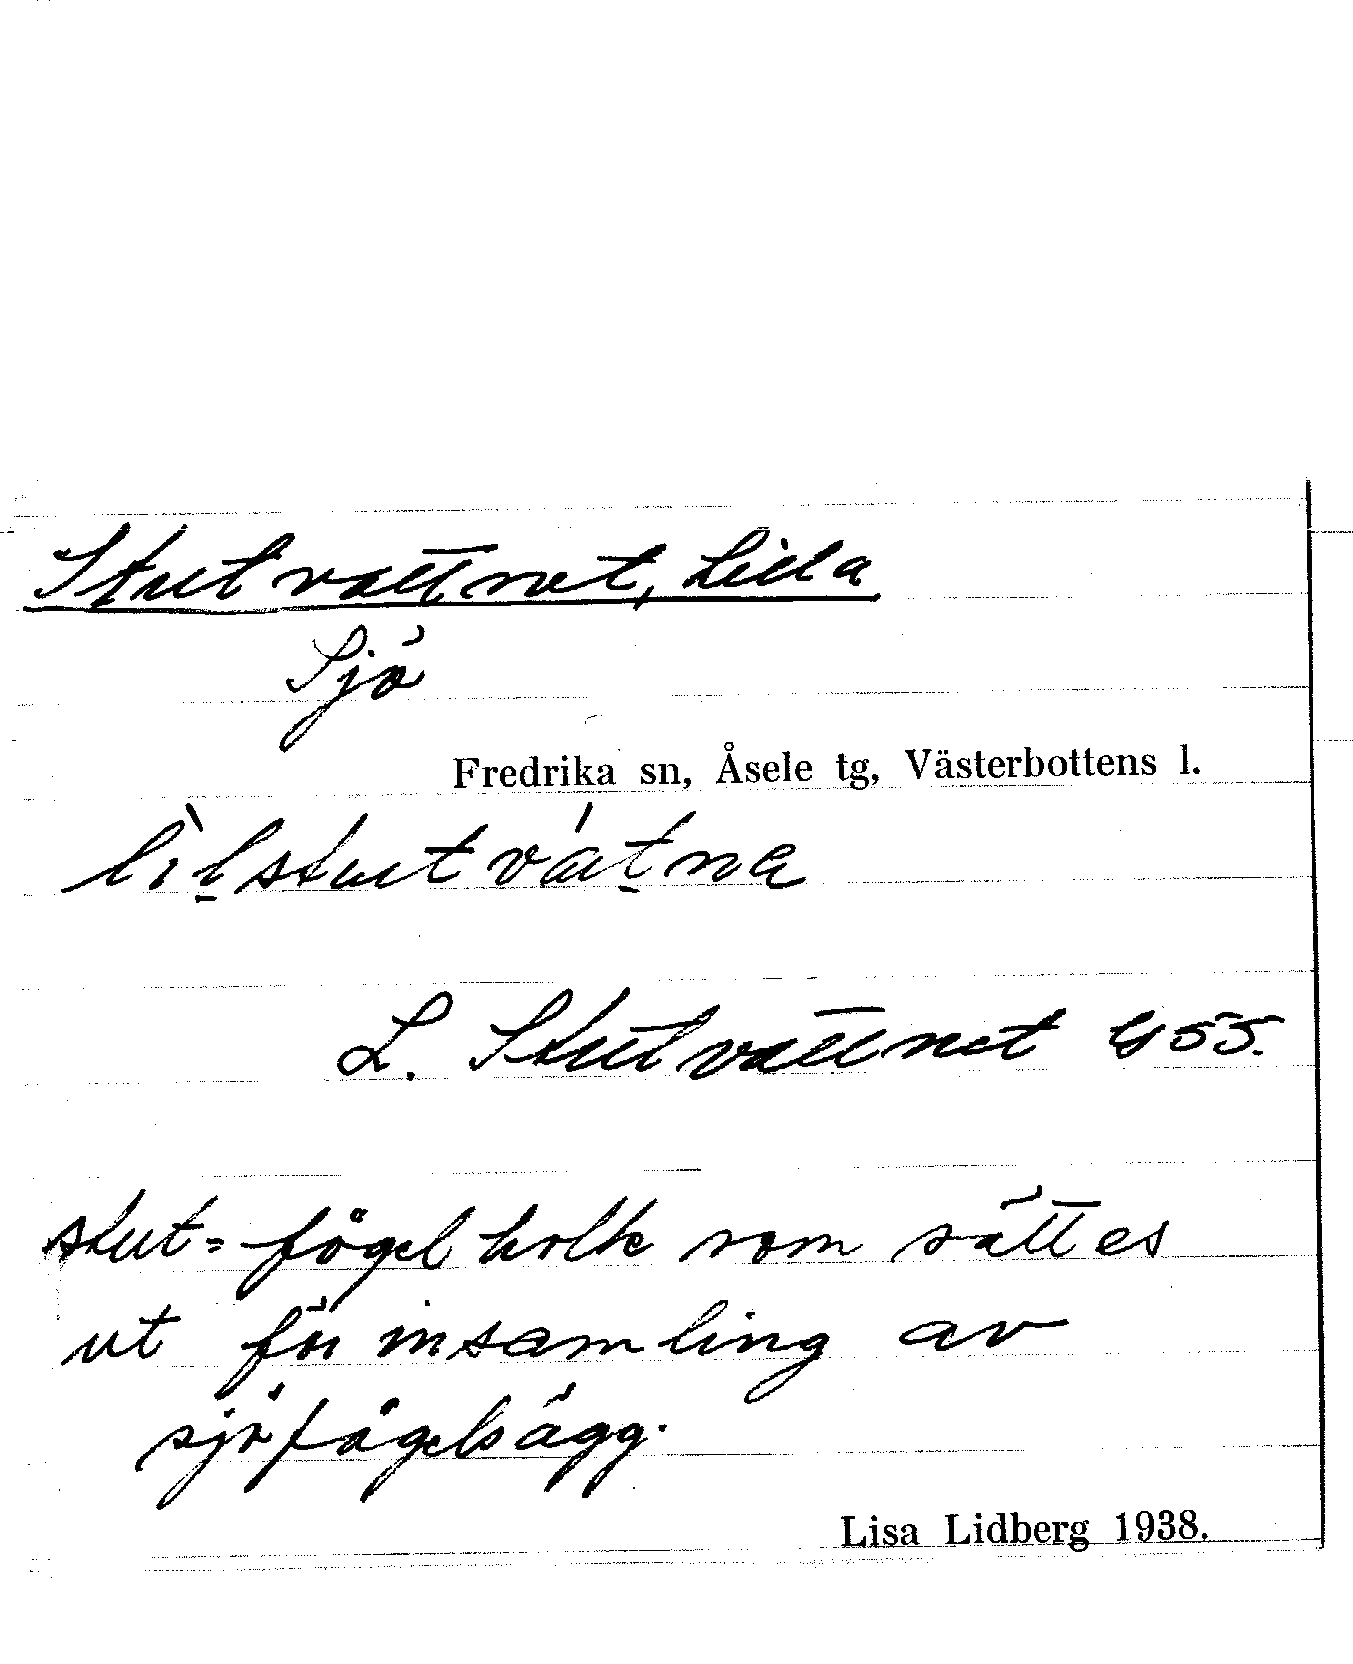 Stutvattnet, Lilla
Sjö
Fredrika sn, Åsele tg, Västerbottens l.
lìl̠stutvát̠na
L. Stutvattnet G 55.
stut= fågelholk som sättes
ut för insamling av
sjöfågelsägg.
Lisa Lidberg 1938.